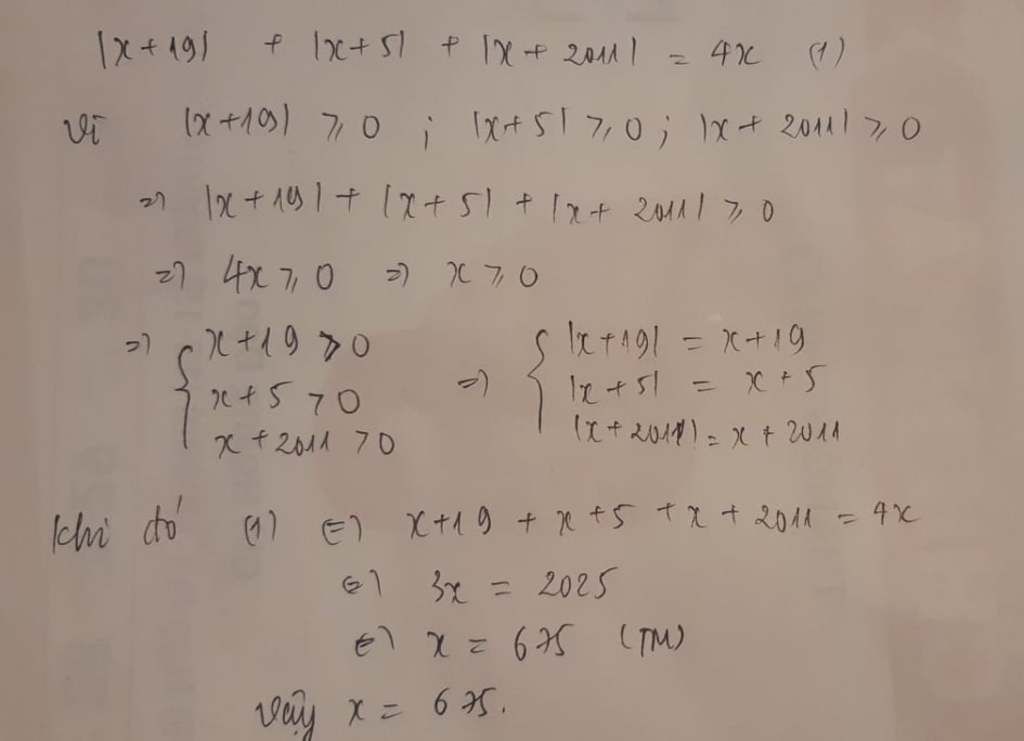 |x + 19| + |x + 5| + |x + 2011| = 4x (1)
Vì |x + 19| ⩾ 0 ; |x + 5| ⩾ 0 ; |x + 2011| ⩾ 0
=> |x + 19| + |x + 5| + |x + 2011| ⩾ 0
=> 4x ⩾ 0 => x ⩾ 0
=> { x + 19 > 0 => { |x + 19| = x + 19
x + 5 > 0 |x + 5| = x + 5
x + 2011 > 0 |x + 2011| = x + 2011
Khi đó (1) <=> x + 19 + x + 5 + x + 2011 = 4x
<=> 3x = 2025
<=> x = 675 (TM)
Vậy x = 675.